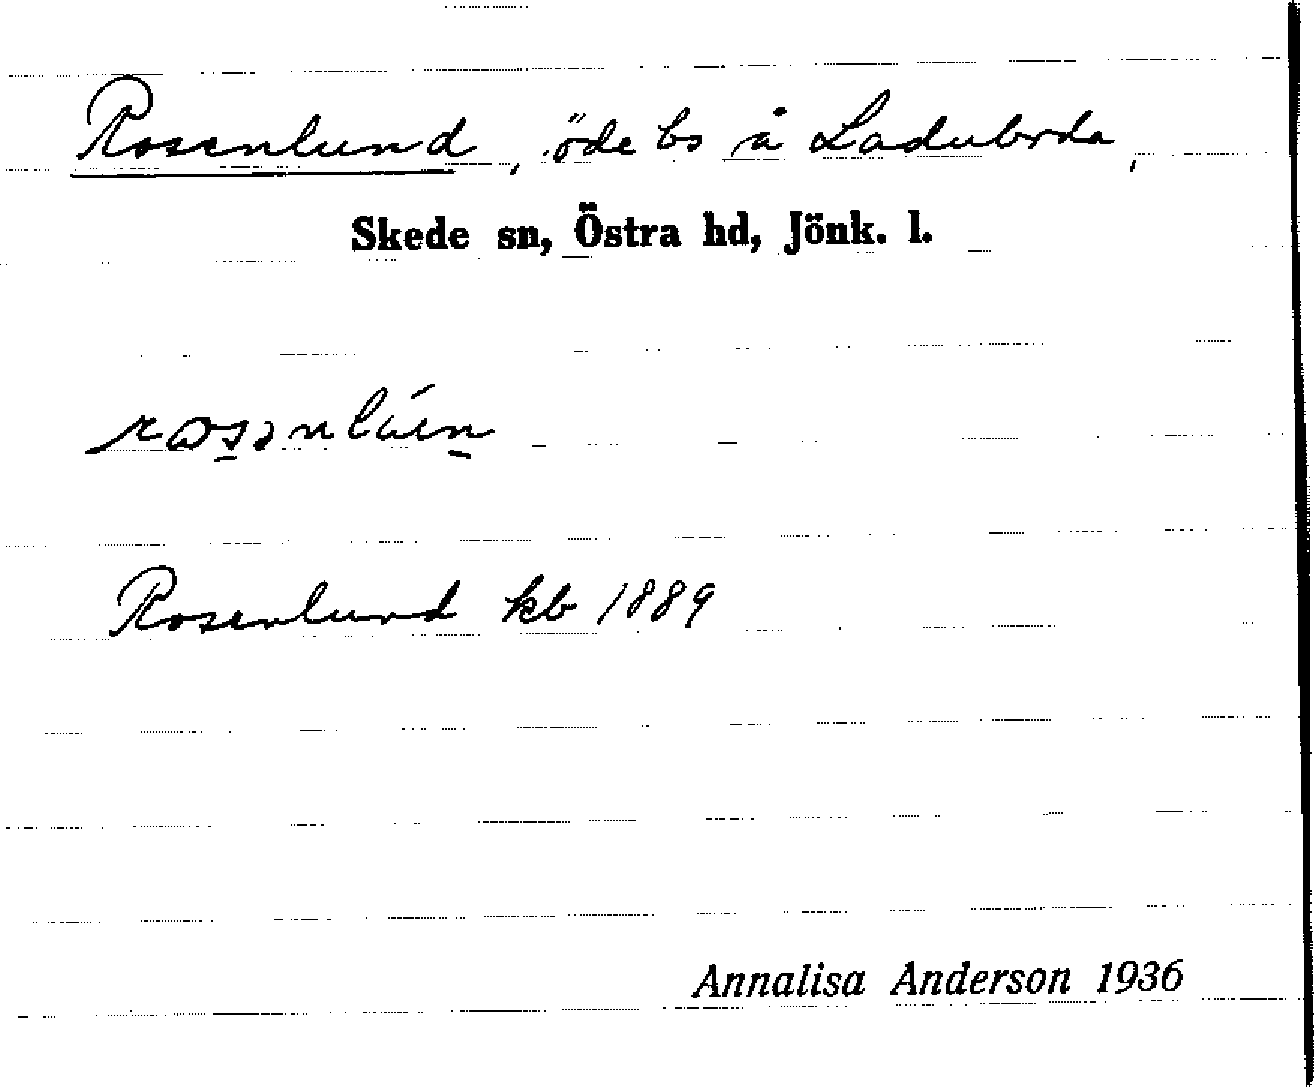 Rosenlund, öde bs å Laduborda,
Skede sn, Östra hd, Jönk. l.
Rosenlund kb 1889
Annalisa Anderson 1936